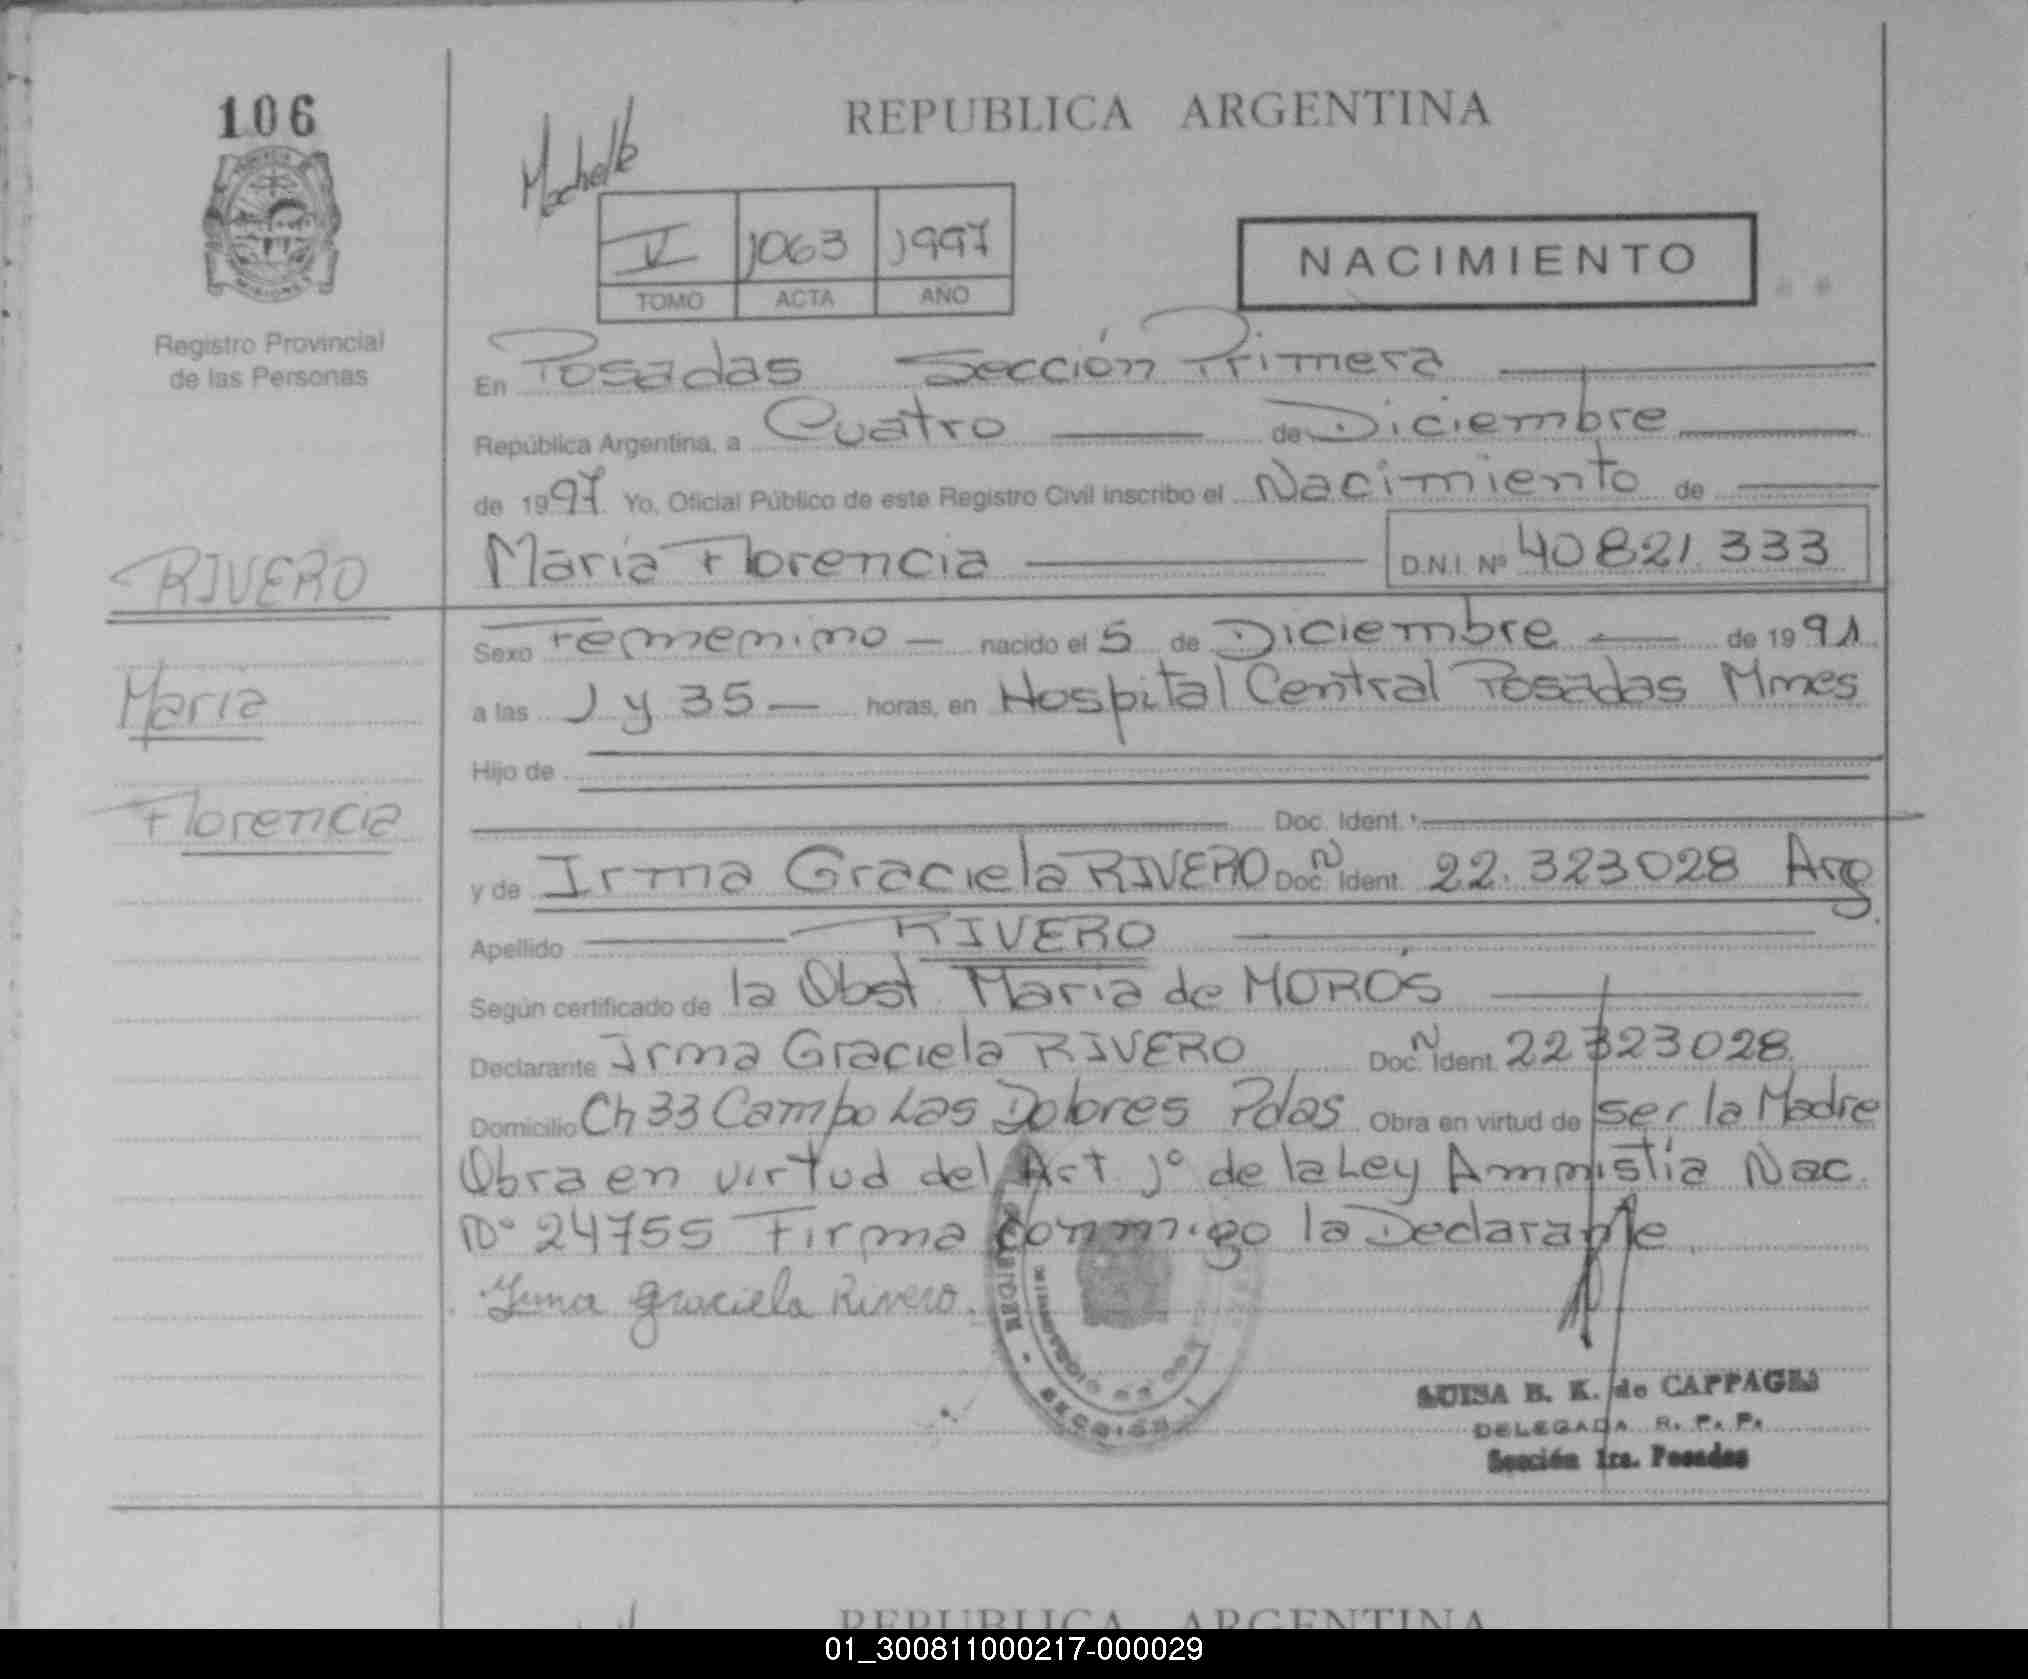 106
REPUBLICA ARGENTINA
V 1063 1997
TOMO ACTA AÑO
NACIMIENTO
Registro Provincial
de las Personas
En Posadas Sección Primera
República Argentina, a Cuatro de Diciembre
de 1997. Yo, Oficial Público de este Registro Civil inscribo el Nacimiento de
RIVERO
María Florencia D.N.I. Nº 40821.333
Sexo Femenino nacido el 5 de Diciembre de 1991
María
a las 1 y 35 horas, en Hospital Central Posadas Mnes
Hijo de
Florencia
Doc. Ident.
y de Irma Graciela RIVERO Doc. N Ident. 22.323028 Arg.
Apellido RIVERO
Según certificado de la Obst Maria de MOROS
Declarante Irma Graciela RIVERO Doc. N Ident. 22323028
Domicilio Ch 33 Campo Las Dolores Pdas Obra en virtud de ser la Madre
Obra en virtud del Art 1º de la Ley Ammistia Nac.
Nº 24755 Firma conmigo la Declarante
Irma Graciela Rivero.
SECCION 1
LUISA B. K. de CAPPAGLI
DELEGADA R. P. P.
Sección 1ra. Posadas
REPUBLICA ARGENTINA
01_300811000217-000029